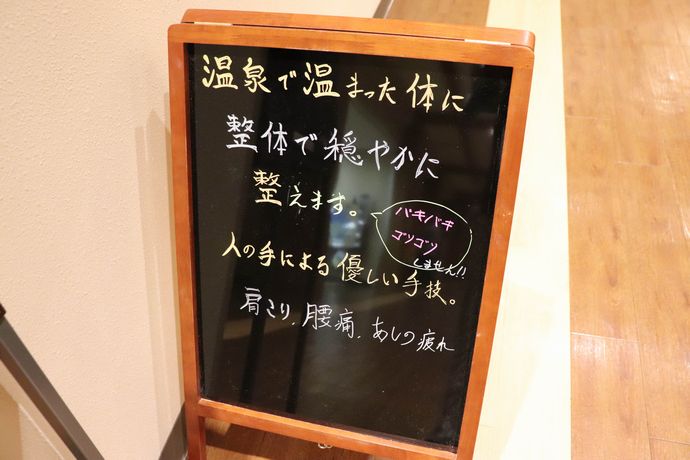 温泉で温まった体に
整体で穏やかに
整えます。
バキバキ
ゴリゴリ
しません!!
人の手による優しい手技。
肩こり、腰痛、あしの疲れ